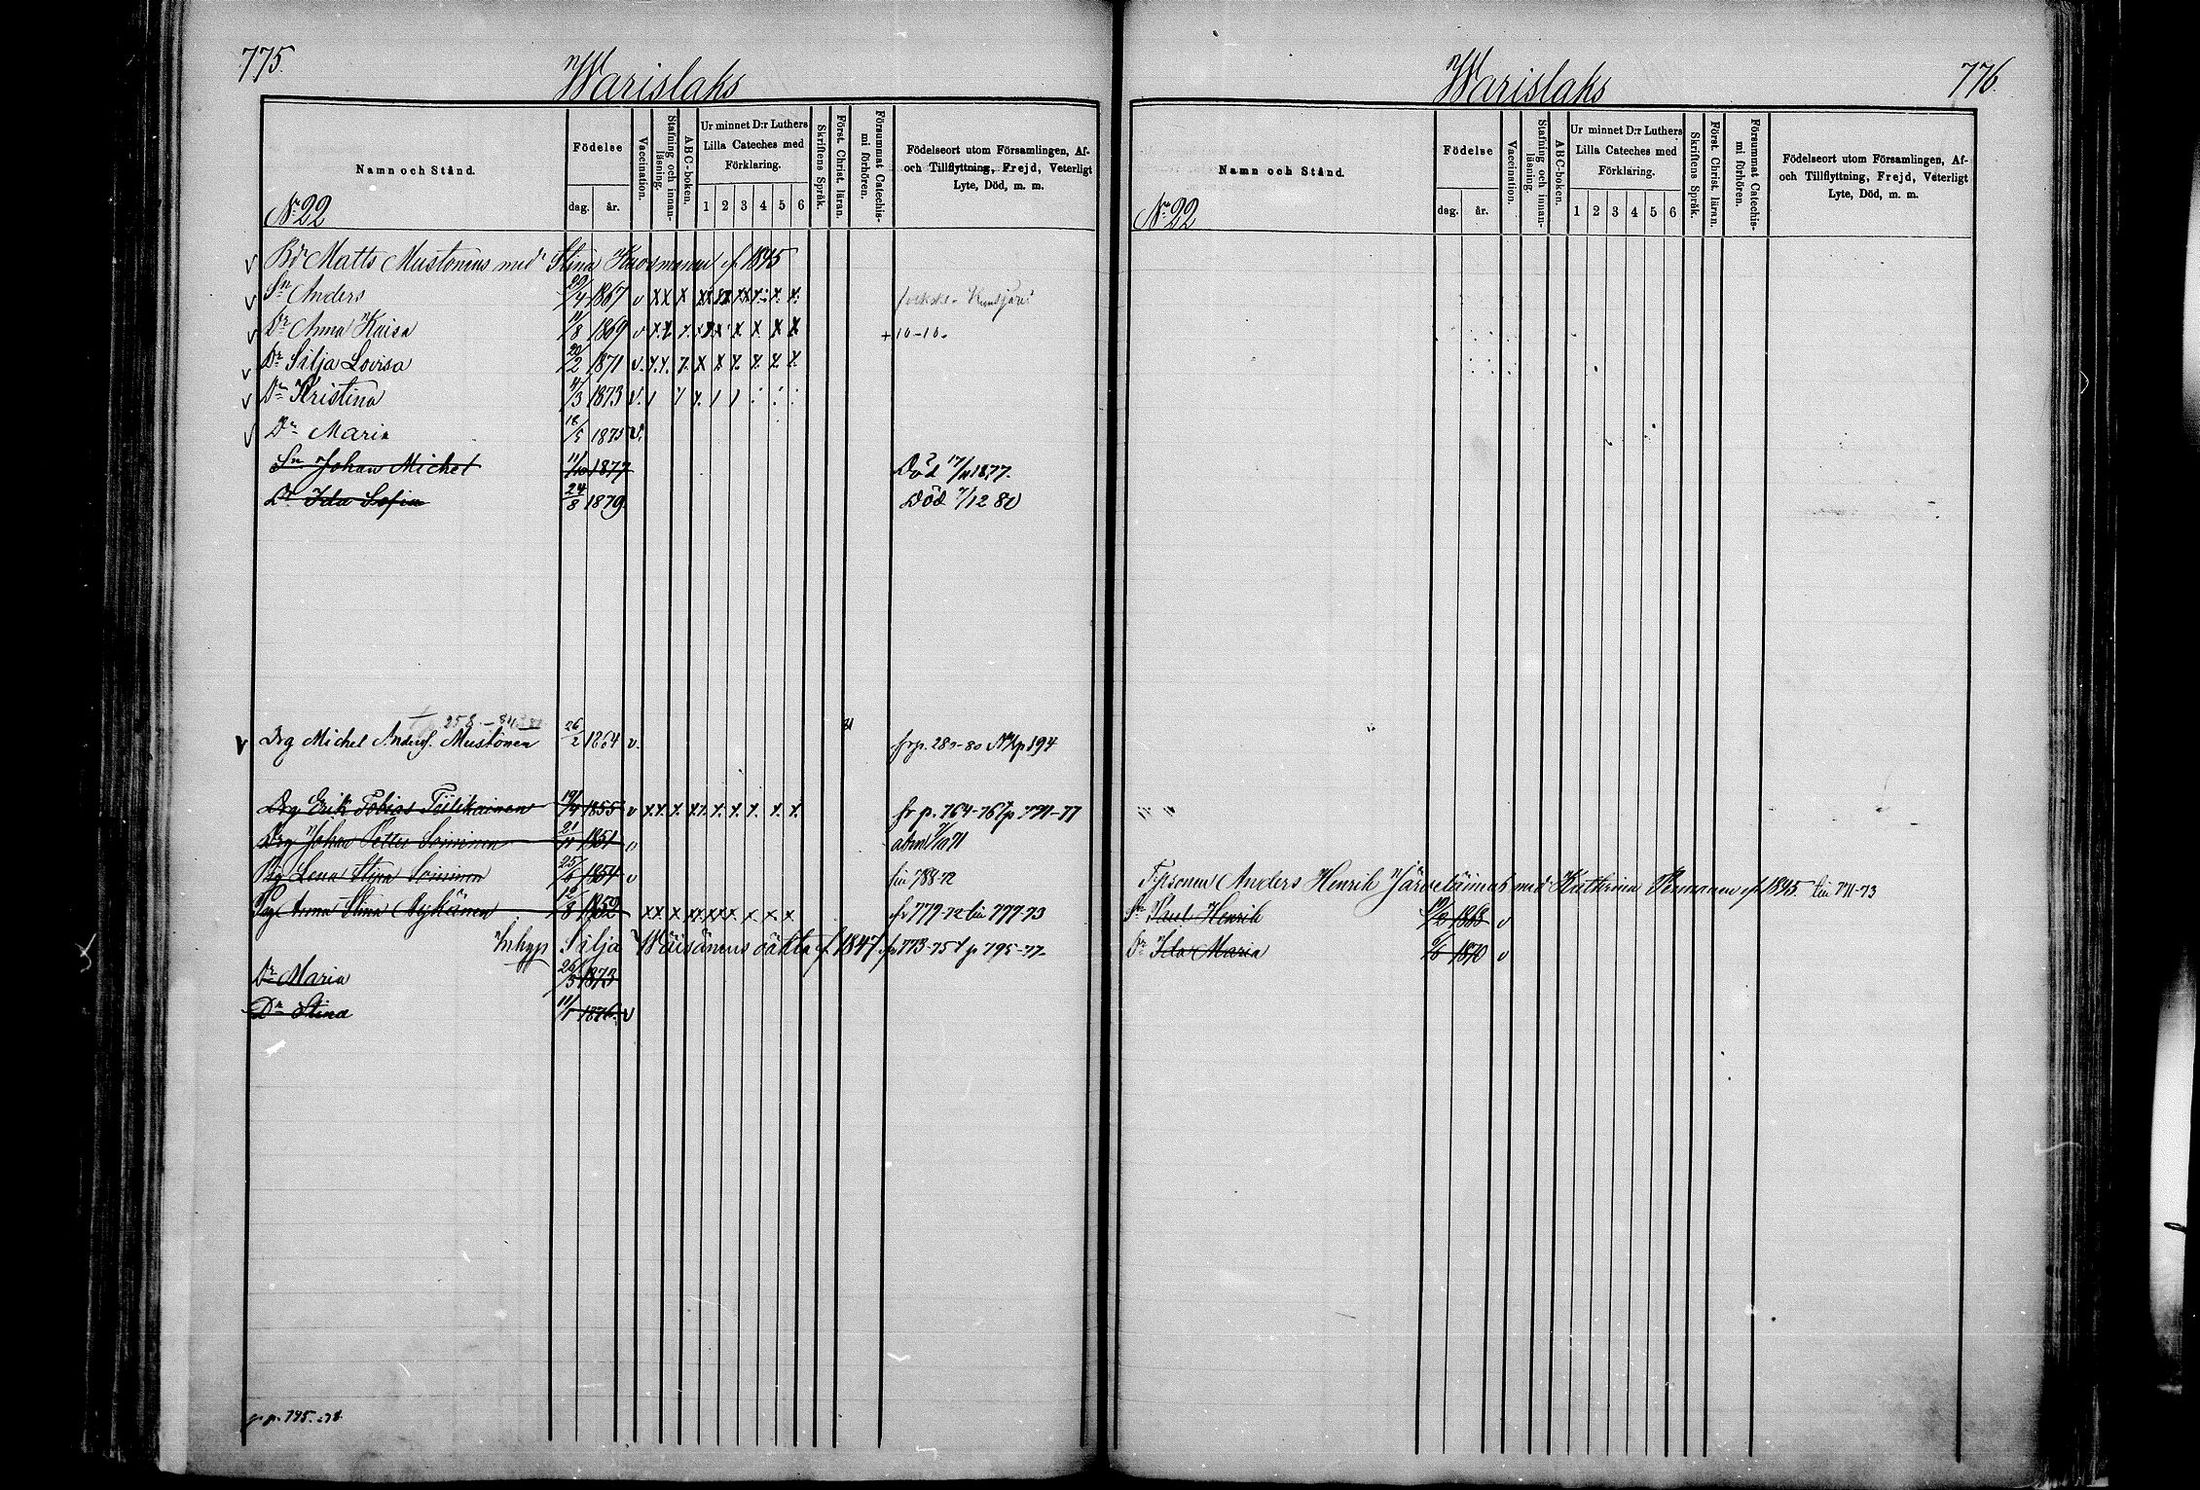 775.
Warislaks
Namn och Stånd.
Födelse
dag. år.
Vaccination.
Stafning och innan-
läsning.
ABC-boken.
Ur minnet D:r Luthers
Lilla Cateches med
Förklaring.
1 2 3 4 5 6
Skriftens Språk.
Först. Christ. läran.
Försummat Catechis-
mi förhören.
Födelseort utom Församlingen, Af-
och Tillflyttning, Frejd, Veterligt
Lyte, Död, m. m.
No 22
Matts Mustonens med Stina 1845
Sn Anders 29/4 1867 v x x x
Dr Anna Kaisa 11/8 1869 v + 10-10.
Dr Silja Lovisa 20/2 1871 v.
Dr Kristina 1873 v.
Dr Maria 18/5 1875 v.
Sn Johan Michel 11/10 1877 Död 17/11 1877.
Dr Ida Sofia 24/8 1879 Död 7/12 80
258-
Drg Michel Andersf. Mustonen 26/2 1864 v. 81 frp. 280-80
Drg Erik Tobias Tiilikainen 19/4 1855 v fr p. 764-76 tp 771-77
Drg Johan Petter Soininen 21/11 1851 v
Pig Lena Stina Soininen 25/6 1854 v till 788-72
Pig Anna Stina 12/8 1852 x x x x x x x x fr 779-72 till 777-73
Inhyp Silja Wäisänens oäkta f 1847 fr p 773-75 t p 795-77.
Dr Maria 26/3 1873
Dr Stina 11/1 1876 v
fr p. 795-78
Warislaks
776.
Namn och Stånd.
Födelse
dag. år.
Vaccination.
Stafning och innan-
läsning.
ABC-boken.
Ur minnet D:r Luthers
Lilla Cateches med
Förklaring.
1 2 3 4 5 6
Skriftens Språk.
Först. Christ. läran.
Försummat Catechis-
mi förhören.
Födelseort utom Församlingen, Af-
och Tillflyttning, Frejd, Veterligt
Lyte, Död, m. m.
No 22
Anders Henrik Järveläinens med Kathrina f 1845. till 771-73
Sn Paul Henrik 1868 v
Dr Ida Maria 1870 v